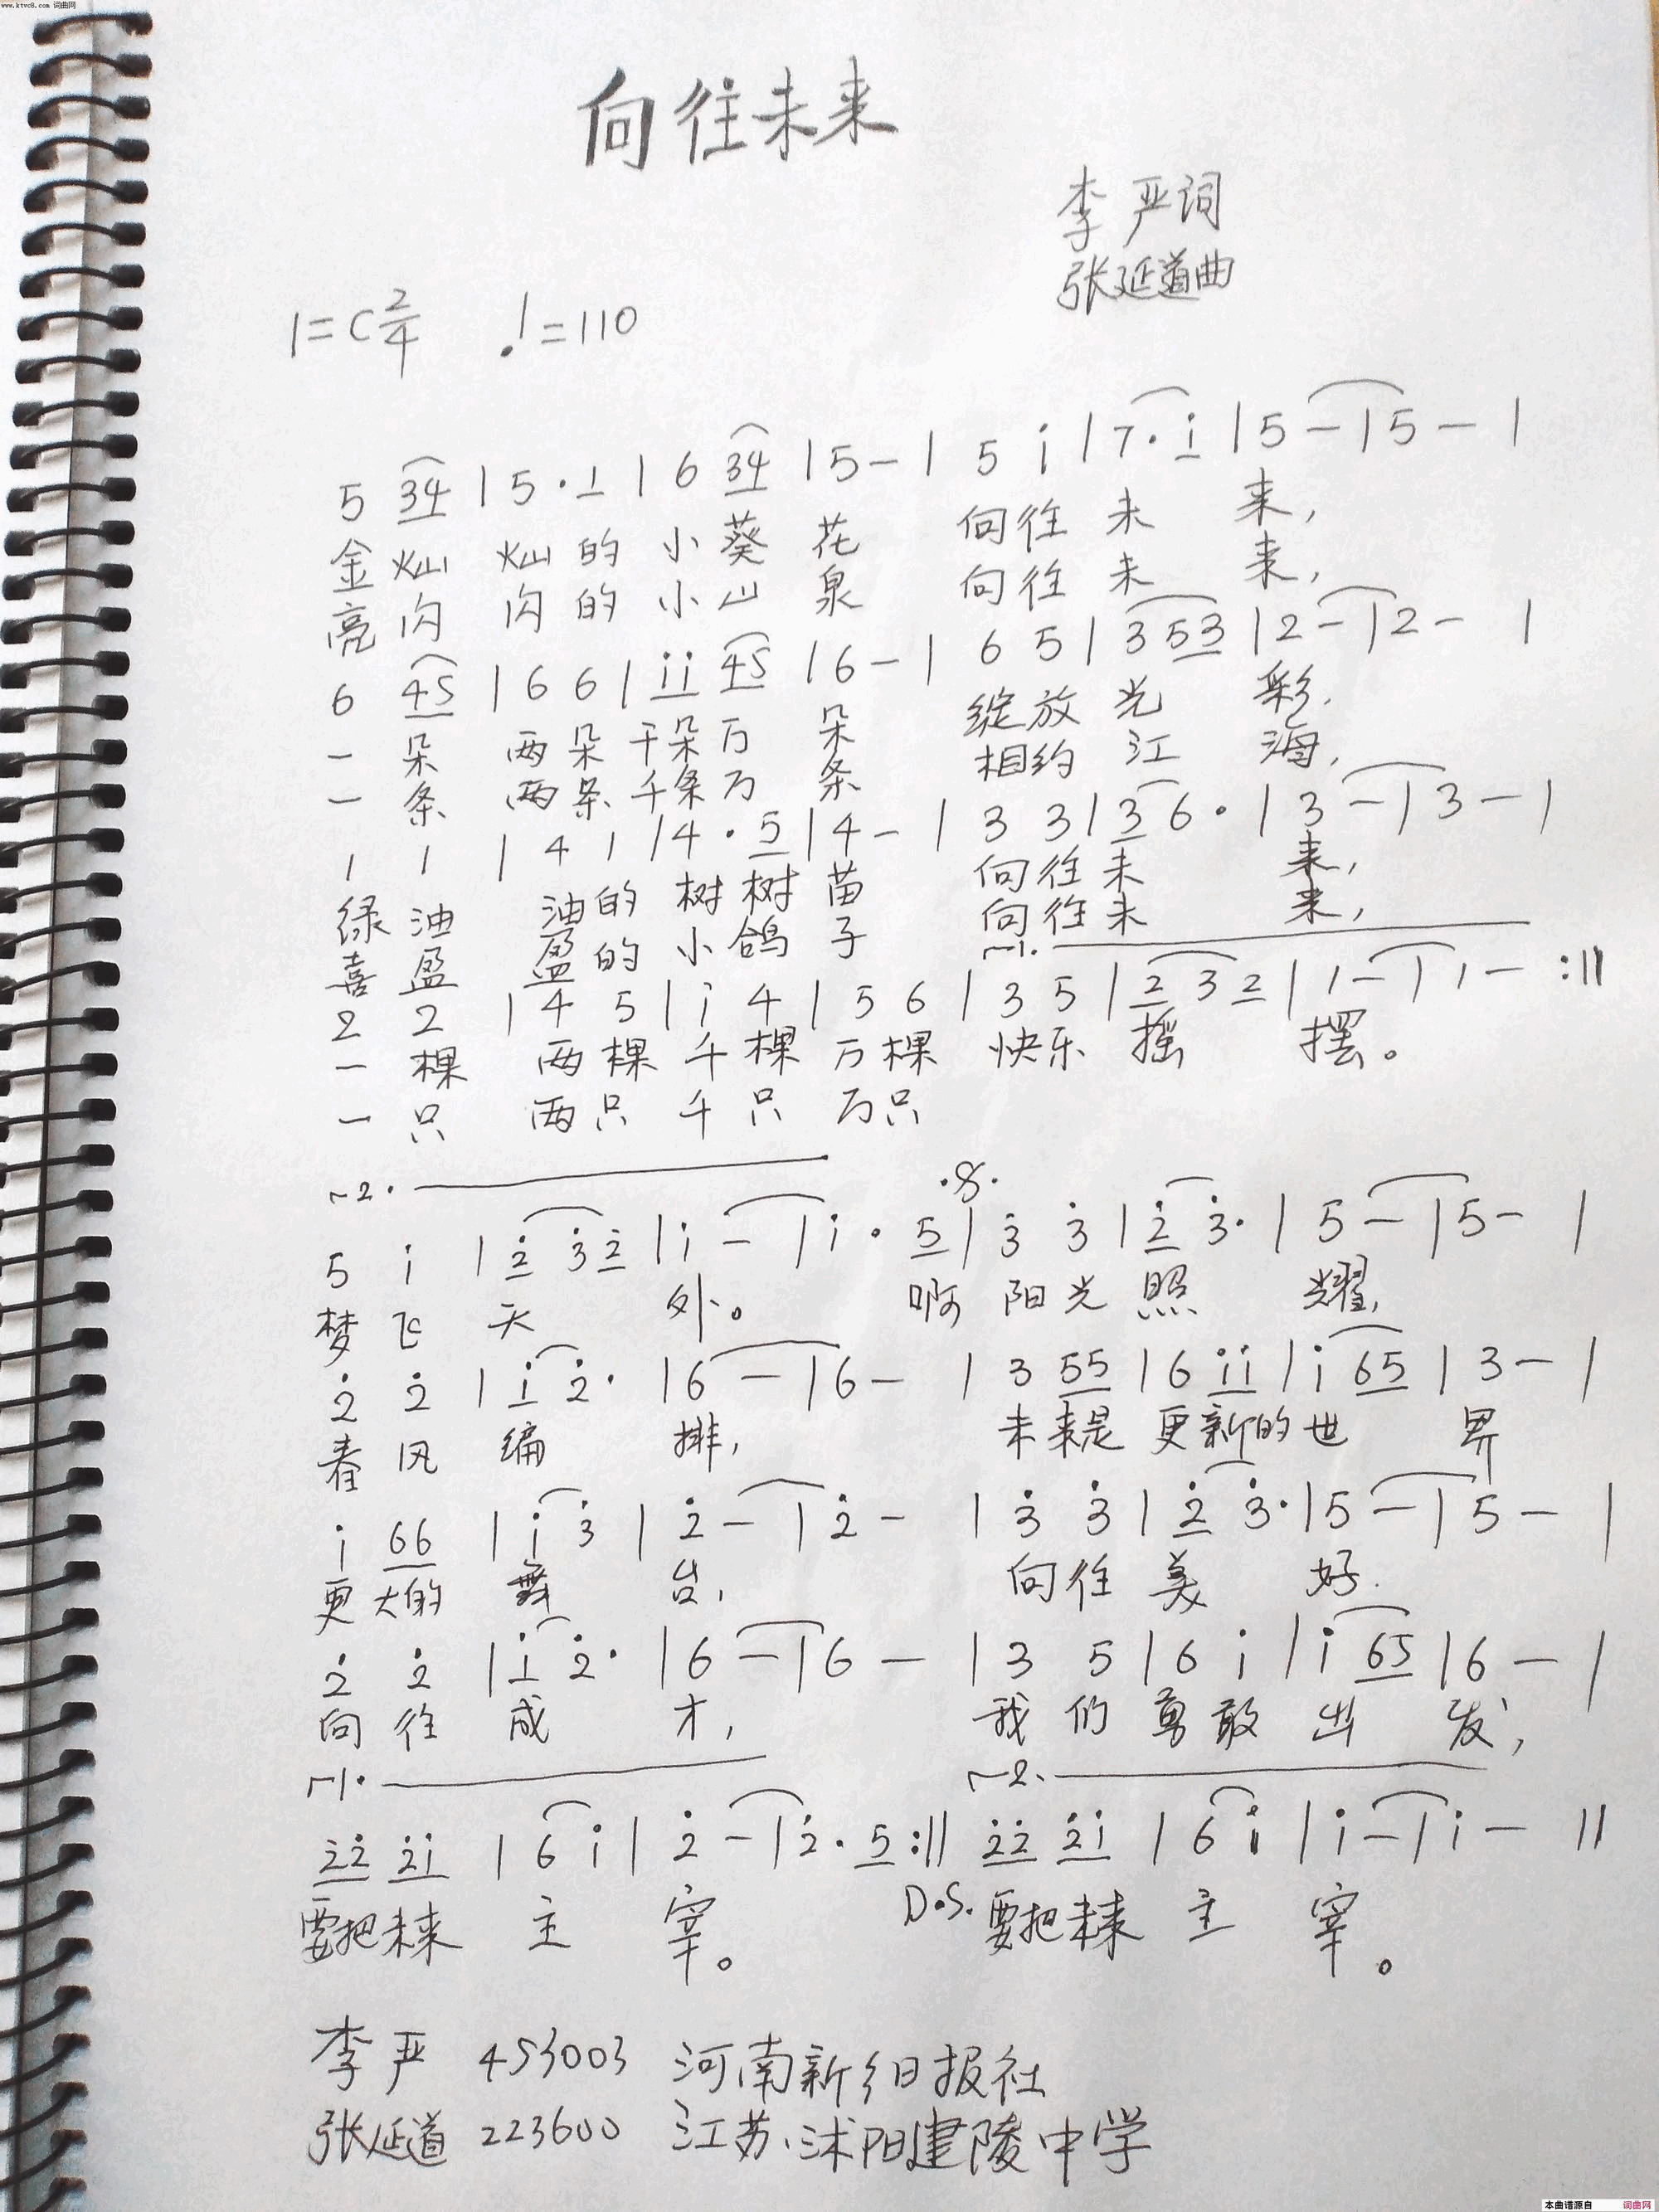 www.ktvc8.com 词曲网
向往未来
李严词
张延道曲
1=C 2/4 ♩=110
5 34 | 5·1 | 6 34 | 5 - | 5 i | 7·i | 5 - | 5 - |
金灿 灿的 小葵 花 向往 未 来,
亮闪 闪的 小山 泉 向往 未 来,
6 45 | 6 6 | ii 45 | 6 - | 6 5 | 3 53 | 2 - | 2 - |
一朵 两朵 千朵万 朵 绽放 光 彩.
一条 两条 千条万 条 相约 江 海,
1 1 | 4 1 | 4·5 | 4 - | 3 3 | 3 6· | 3 - | 3 - |
绿油 油的 树树 苗 向往 未 来,
喜盈 盈的 小鸽 子 向往 未 来,
1.
2 2 | 4 5 | i 4 | 5 6 | 3 5 | 2 3 2 | 1 - | 1 - :||
一棵 两棵 千棵 万棵 快乐 摇 摆。
一只 两只 千只 万只
2. 𝄋
5 i | 2̇ 3̇2̇ | i - | i·5 | 3̇ 3̇ | 2̇ 3̇· | 5 - | 5 - |
梦飞 天 外。 啊 阳光 照 耀,
2̇ 2̇ | i 2̇· | 6 - | 6 - | 3 55 | 6 ii | i 65 | 3 - |
春风 编 排, 未来是 更新的 世 界
i 66 | i 3̇ | 2̇ - | 2̇ - | 3̇ 3̇ | 2̇ 3̇· | 5 - | 5 - |
更大的 舞 台, 向往 美 好.
2̇ 2̇ | i 2̇· | 6 - | 6 - | 3 5 | 6 i | i 65 | 6 - |
向往 成 才, 我们 勇敢 出 发,
1. 2.
2̇2̇ 2̇i | 6 i | 2̇ - | 2̇·5 :|| 2̇2̇ 2̇i | 6 i | i - | i - ||
要把未来 主 宰。 D.S. 要把未来 主 宰。
李严 453003 河南新乡日报社
张延道 223600 江苏、沭阳建陵中学
本曲谱源自 词曲网